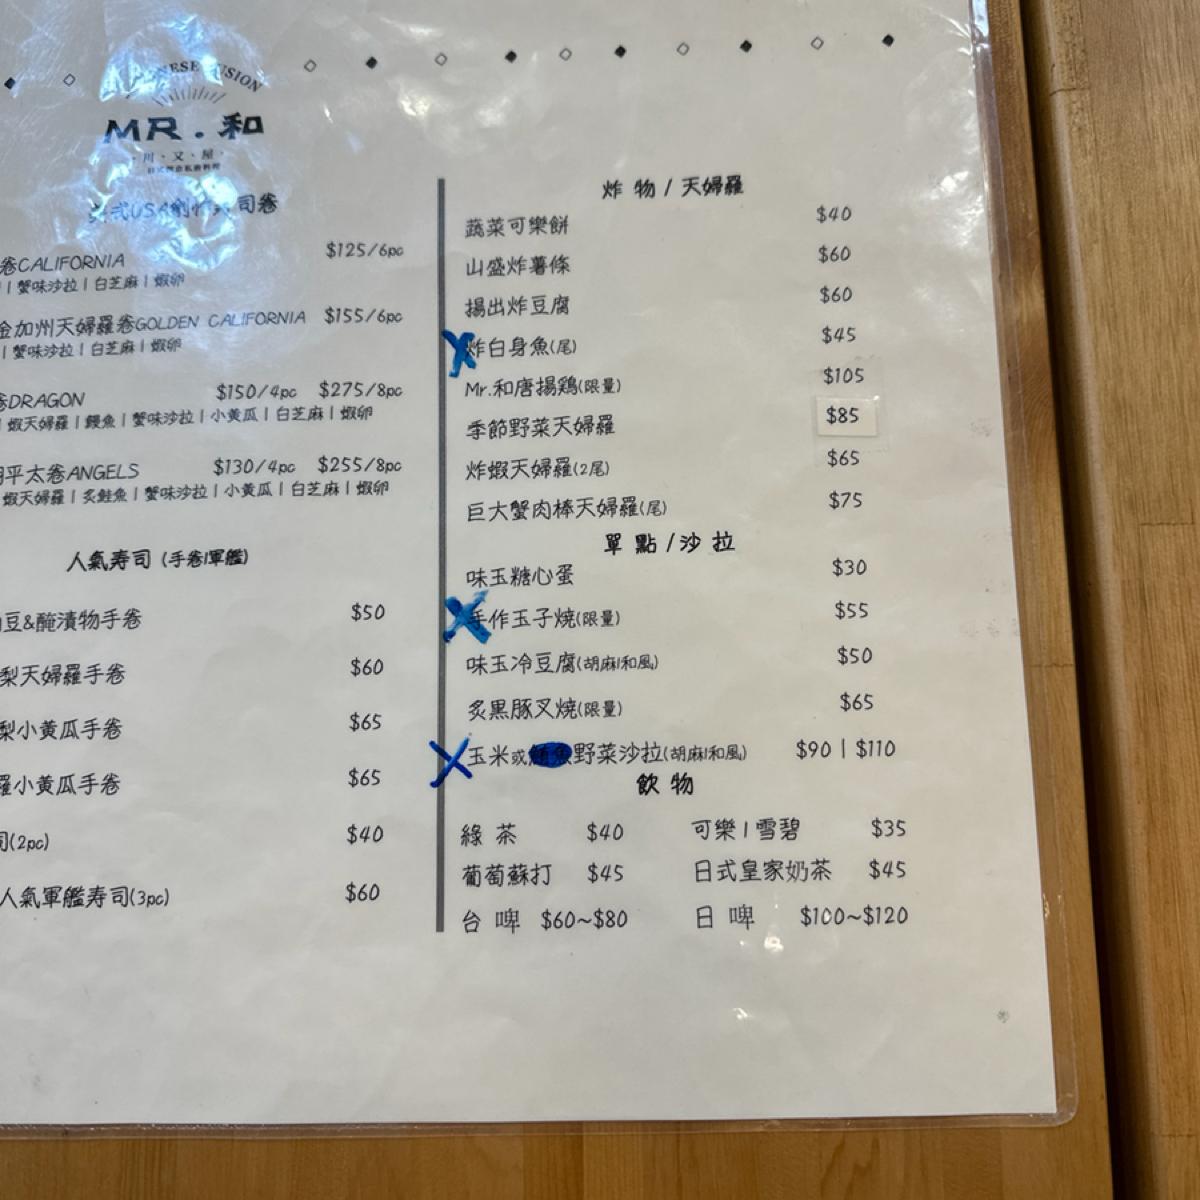 MR.和
川·又·屋
司卷
卷CALIFORNIA $125/6pc
| 蟹味沙拉 | 白芝麻 | 蝦卵
金加州天婦羅卷GOLDEN CALIFORNIA $155/6pc
| 蟹味沙拉 | 白芝麻 | 蝦卵
卷DRAGON $150/4pc $275/8pc
蝦天婦羅 | 鰻魚 | 蟹味沙拉 | 小黃瓜 | 白芝麻 | 蝦卵
平太卷ANGELS $130/4pc $255/8pc
蝦天婦羅 | 炙鮭魚 | 蟹味沙拉 | 小黃瓜 | 白芝麻 | 蝦卵
人氣寿司 (手卷/軍艦)
豆&醃漬物手卷 $50
梨天婦羅手卷 $60
梨小黃瓜手卷 $65
羅小黃瓜手卷 $65
司(2pc) $40
人氣軍艦寿司(3pc) $60
炸物/天婦羅
蔬菜可樂餅 $40
山盛炸薯條 $60
揚出炸豆腐 $60
炸白身魚(尾) $45
Mr.和唐揚鶏(限量) $105
季節野菜天婦羅 $85
炸蝦天婦羅(2尾) $65
巨大蟹肉棒天婦羅(尾) $75
單點/沙拉
味玉糖心蛋 $30
手作玉子燒(限量) $55
味玉冷豆腐(胡麻/和風) $50
炙黒豚叉燒(限量) $65
玉米或鮪魚野菜沙拉(胡麻/和風) $90 | $110
飲物
綠茶 $40 可樂 | 雪碧 $35
葡萄蘇打 $45 日式皇家奶茶 $45
台啤 $60~$80 日啤 $100~$120